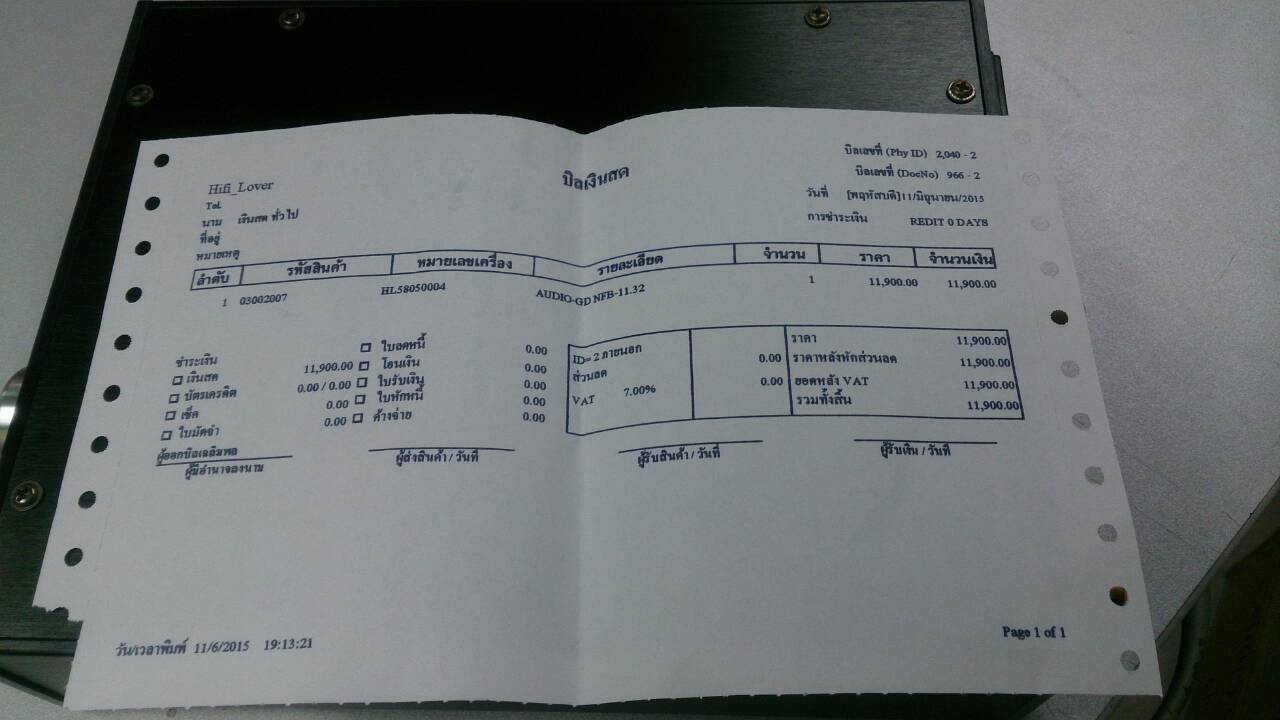 บิลเงินสด
บิลเลขที่ (Phy ID) 2,040 - 2
บิลเลขที่ (DocNo) 966 - 2
วันที่ [พฤหัสบดี]11/มิถุนายน/2015
การชำระเงิน REDIT 0 DAYS
Hifi_Lover
Tel.
นาม เงินสด ทั่วไป
ที่อยู่
หมายเหตุ
ลำดับ รหัสสินค้า หมายเลขเครื่อง รายละเอียด จำนวน ราคา จำนวนเงิน
1 03002007 HL58050004 AUDIO-GD NFB-11.32 1 11,900.00 11,900.00
ชำระเงิน
เงินสด 11,900.00
บัตรเครดิต 0.00 / 0.00
เช็ค 0.00
ใบมัดจำ 0.00
ใบลดหนี้ 0.00
โอนเงิน 0.00
ใบรับเงิน 0.00
ใบหักหนี้ 0.00
ค้างจ่าย 0.00
ID= 2 ภายนอก
ส่วนลด 0.00
VAT 7.00% 0.00
ราคา 11,900.00
ราคาหลังหักส่วนลด 11,900.00
ยอดหลัง VAT 11,900.00
รวมทั้งสิ้น 11,900.00
ผู้ออกบิลเฉลิมพล
ผู้มีอำนาจลงนาม
ผู้ส่งสินค้า / วันที่
ผู้รับสินค้า / วันที่
ผู้รับเงิน / วันที่
วัน/เวลาพิมพ์ 11/6/2015 19:13:21
Page 1 of 1